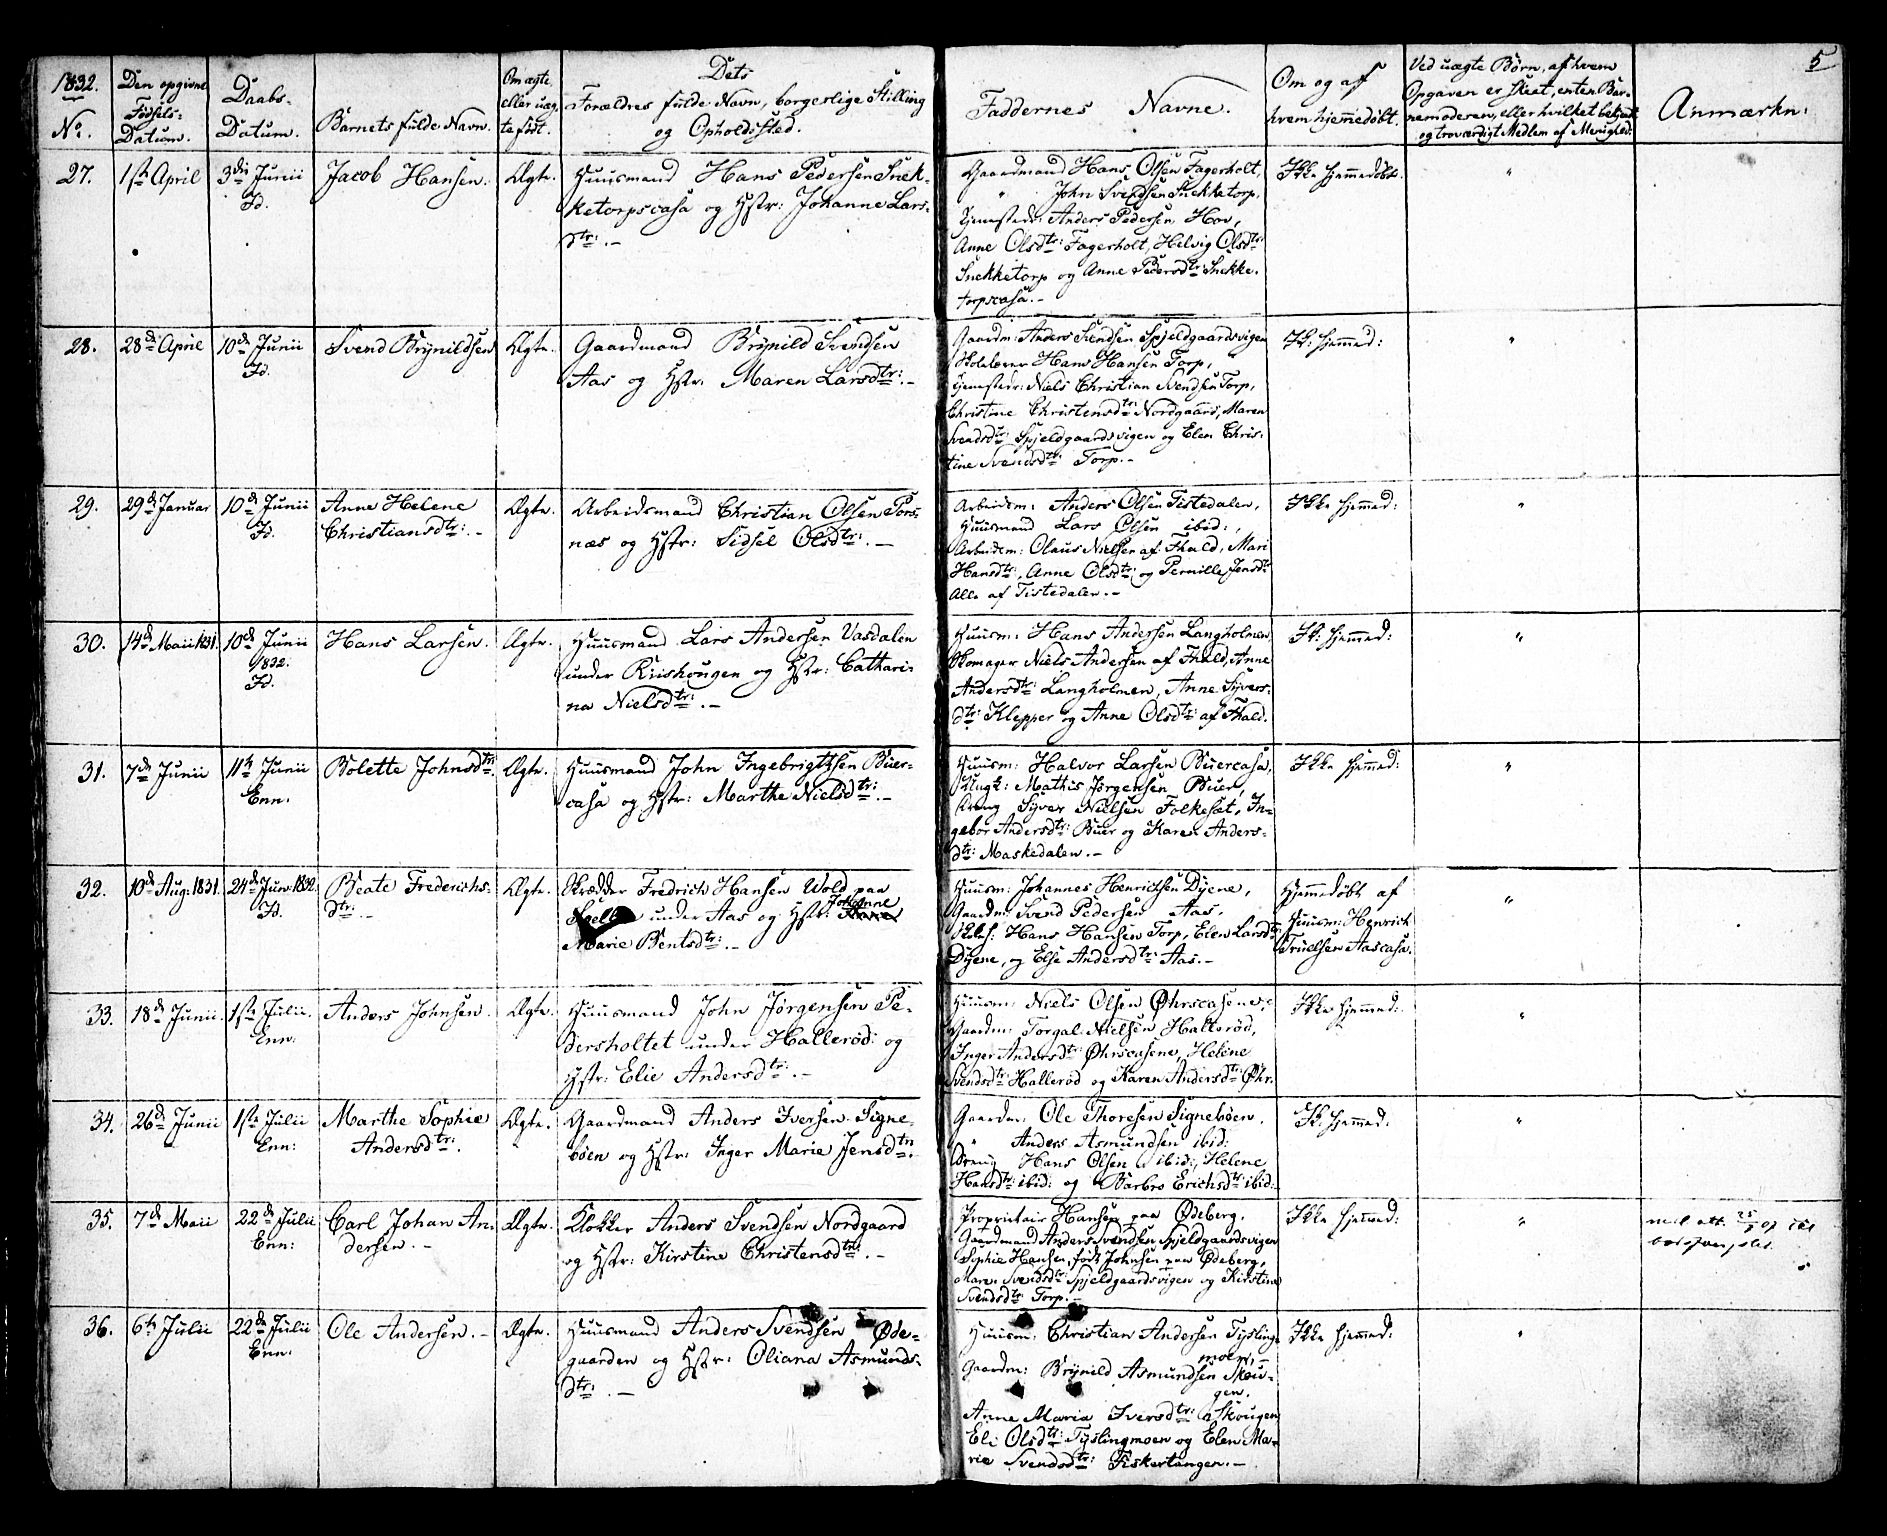 1832.
No.
Den opgivne
Fødsels-
Datum.
Daabs-
Datum.
Barnets fulde Navn.
Om ægte
eller uæg-
te født.
Dets
Forældres fulde Navn, borgerlige Stilling
og Opholdssted.
Faddernes Navne.
Om og af
hvem hjemmedøbt.
Ved uægte Børn, af hvem
Opgaven er skeet, enten Bar-
nemoderen, eller hvilket bekjendt
og troværdigt Medlem af Menighed:
Anmærkn:
5
27.
1ste April
3die Junii
Id.
Jacob Hansen.
Ægte.
Huusmand Hans Pedersen Snek-
ketorpscasa og Hstr: Johanne Lars-
dtr: .-
Gaardmand Hans Olsen Fagerholt,
" John Svendsen Snekketorp,
Tjenestedr: Anders Pedersen Hov,
Anne Olsdtr: Fagerholt, Helvig Olsdtr:
Snekketorp og Anne Pedersdtr: Snekke-
torpscasa.-
Ikke hjemmedøbt.
"
28.
28de April
10de Junii
Id.
Svend Brynildsen
Ægte.
Gaardmand Brynild Svendsen
Aas og Hstr: Maren Larsdtr: .-
Gaardm: Anders Svendsen Spjeldgaardsvigen
Skolelærer Hans Hansen Torp,
Tjenestedr: Niels Christian Svendsen Torp,
Christine Christensdtr: Nordgaard, Maren
Svendsdtr: Spjeldgaardsvigen og Elen Chris-
tine Svendsdtr: Torp.-
Ik: hjemmed:
"
29.
29de Januar
10de Junii
Id.
Anne Helene
Christiansdtr: .-
Ægte.
Arbeidsmand Christian Olsen Pors-
næs og Hstr: Sidsel Olsdtr: .-
Arbeidsm: Anders Olsen Tistedalen,
Huusmand Lars Olsen ibid:,
Arbeidsm: Olaus Nielsen af Fhald, Mari
Hansdtr:, Anne Olsdtr: og Pernille Jensdtr
Alle af Tistedalen.-
Ikke hjemmed:
"
30.
14de Maii 1831.
10de Junii
1832.
Id.
Hans Larsen.
Ægte.
Huusmand Lars Andersen Vasdalen
under Riishougen og Hstr: Cathari-
na Nielsdtr: .-
Huusm: Hans Andersen Langholmen,
Skomager Niels Andersen af Fhald, Anne
Andersdtr: Langholmen, Anne Syvers-
dtr: Klepper og Anne Olsdtr: af Fhald.
Ik: hjemmed:
"
31.
7de Junii
11te Junii
Enn:
Bolette Johnsdtr:
Ægte.
Huusmand John Ingebrigtsen Buer-
casa og Hstr: Marthe Nielsdtr: .-
Huusm: Halvor Larsen Buercasa,
Ungk: Mathis Jørgensen Buer,
Dreng Syver Nielsen Folkesæt, In-
gebor Andersdtr: Buer og Karen Anders-
dtr: Maskedalen.-
Ikke hjemmed:
"
32.
10de Aug: 1831.
24de Jun: 1832.
Id.
Beate Frederichs-
dtr: .-
Ægte.
Skrædder Fredrich Hansen Wold paa
under Aas og Hstr: Johanne
Marie Bentsdtr: .-
Huusm: Johannes Henrichsen Dyene,
Gaardm: Svend Pedersen Aas,
Hans Hansen Torp, Elen Larsdtr:
Dyene, og Else Andersdtr: Aas.-
Hjemmedøbt af
Huusm: Henrich
Truelsen Aascasa.
"
33.
18de Junii.
1ste Julii.
Enn:
Anders Johnsen.
Ægte.
Huusmand John Jørgensen Pe-
dersholtet under Hallerød: og
Hstr: Elie Andersdtr: .-
Huusm: Niels Olsen Øhrscasene,
Gaardm: Torgal Nielsen Hallerød,
Inger Andersdtr: Øhrscasene, Helene
Svendsdtr: Hallerød og Karen Andersdtr: Øhr.
Ikke hjemmed:
"
34.
26de Junii
1ste Julii
Enn:
Marthe Sophie
Andersdtr: .
Ægte.
Gaardmand Anders Iversen Signe-
bøen og Hstr: Inger Marie Jensdtr:
Gaardm: Ole Thoresen Signebøen,
" Anders Asmundsen ibid:
Dreng Hans Olsen ibid:, Helene
Hansdtr: ibid: og Barbro Erichsdtr: ibid:
Ik: hjemmed:
"
35.
7de Maii
22de Julii
Enn:
Carl Johan An-
dersen.-
Ægte.
Klokker Anders Svendsen Nordgaard
og Hstr: Kirstine Christensdtr: .-
Proprietair Hansen paa Ødeberg,
Gaardmand Anders Svendsen Spjeldgaardsvigen
Sophie Hansen, født Johnsen paa Ødeberg,
Maren Svendsdtr: Spjeldgaardsvigen og Kirstine
Svendsdtr: Torp.-
Ikke hjemmed:
"
36.
6te Julii
22de Julii
Enn:
Ole Andersen.-
Ægte.
Huusmand Anders Svendsen Øde-
gaarden og Hstr: Oliana Asmunds-
dtr: .-
Huusm: Christian Andersen Tysling-
moen,-
Gaardm: Brynild Asmundsen Skou-
gen.
Anne Maria Iversdtr: Skougen
Eli Olsdtr: Tyslingmoen og Elen Ma-
rie Svendsdtr: Fiskertangen.-
Ikke hjemmed:
"